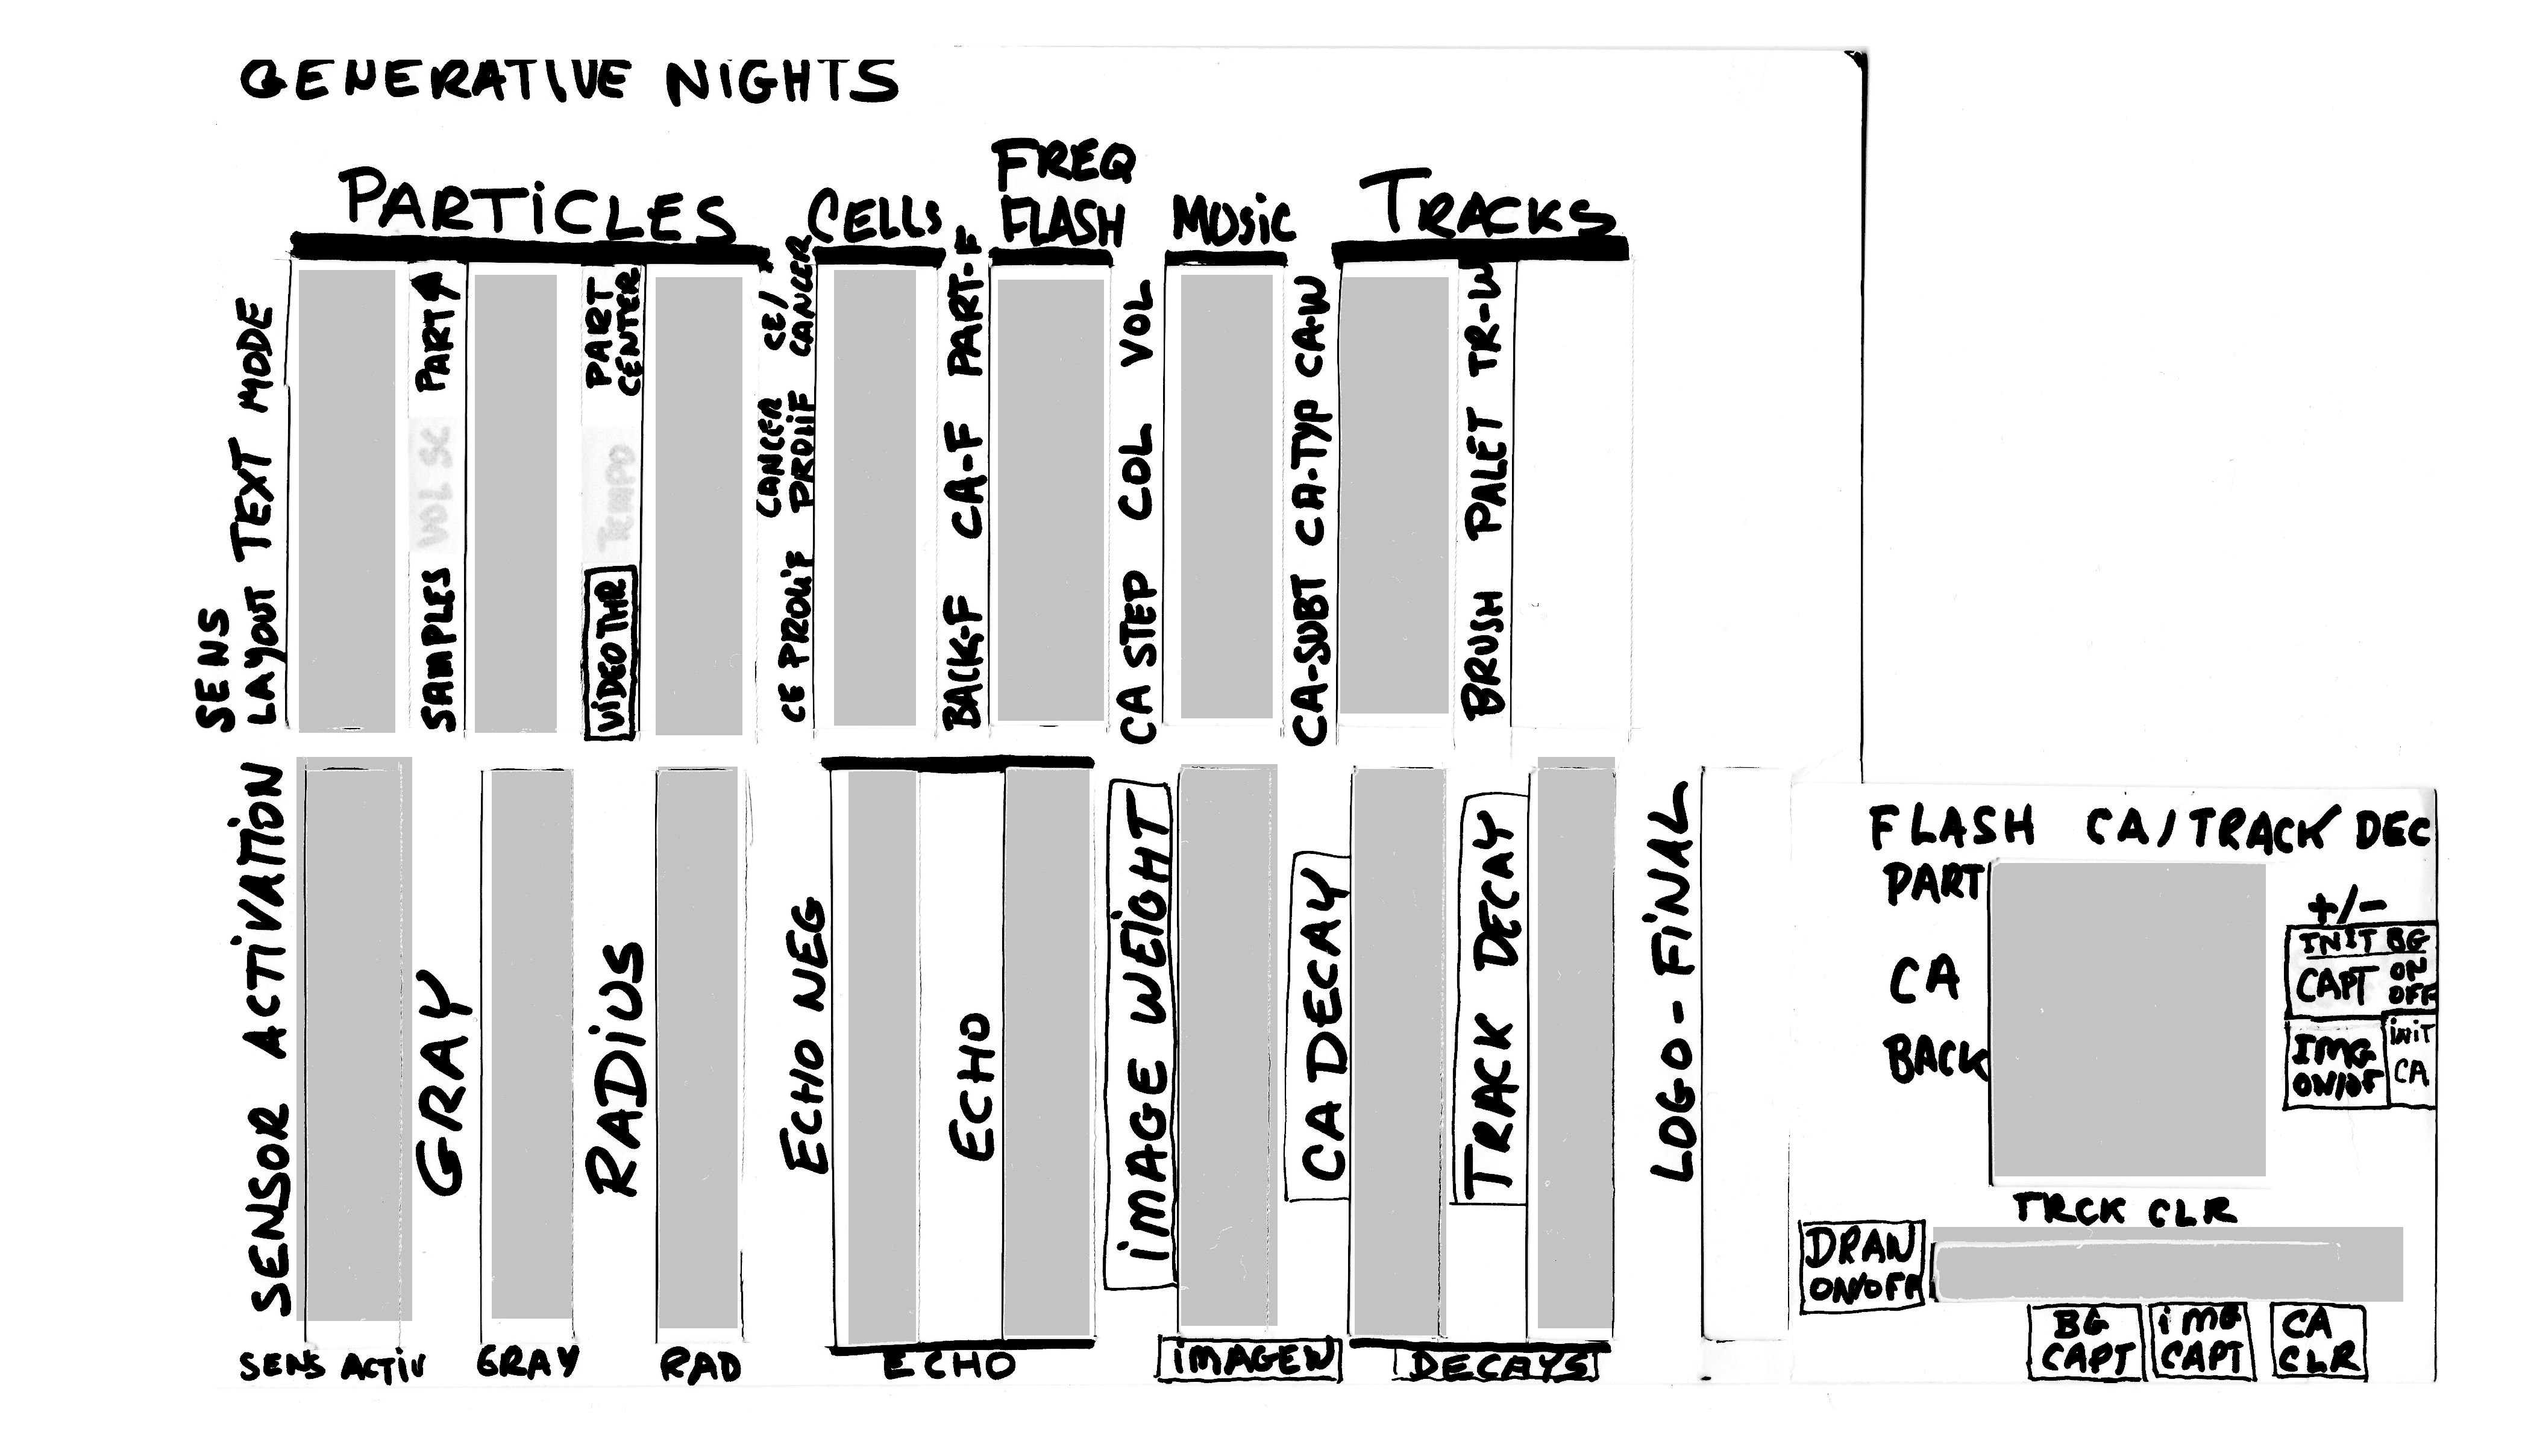 GENERATIVE NIGHTS
PARTICLES
CELLS
FREQ
FLASH
MUSIC
TRACKS
SENS
LAYOUT TEXT MODE
SAMPLES VOL SC PART
VIDEO THR TEMPO PART
CENTER
CE PROLIF CANCER
PROLIF CE/
CANCER
BACK-F CA-F PART-F
CA STEP COL VOL
CA-SUBT CA-TYP CA-W
BRUSH PALET TR-W
SENSOR ACTIVATION
GRAY
RADIUS
ECHO NEG
ECHO
IMAGE WEIGHT
CA DECAY
TRACK DECAY
LOGO-FINAL
SENS ACTIV
GRAY
RAD
ECHO
IMAGEW
DECAYS
FLASH CA/TRACK DEC
PART
CA
BACK
+/-
INIT BG
CAPT ON
OFF
IMG
ON/OF
INIT
CA
TRCK CLR
DRAW
ON/OFF
BG
CAPT
IMG
CAPT
CA
CLR